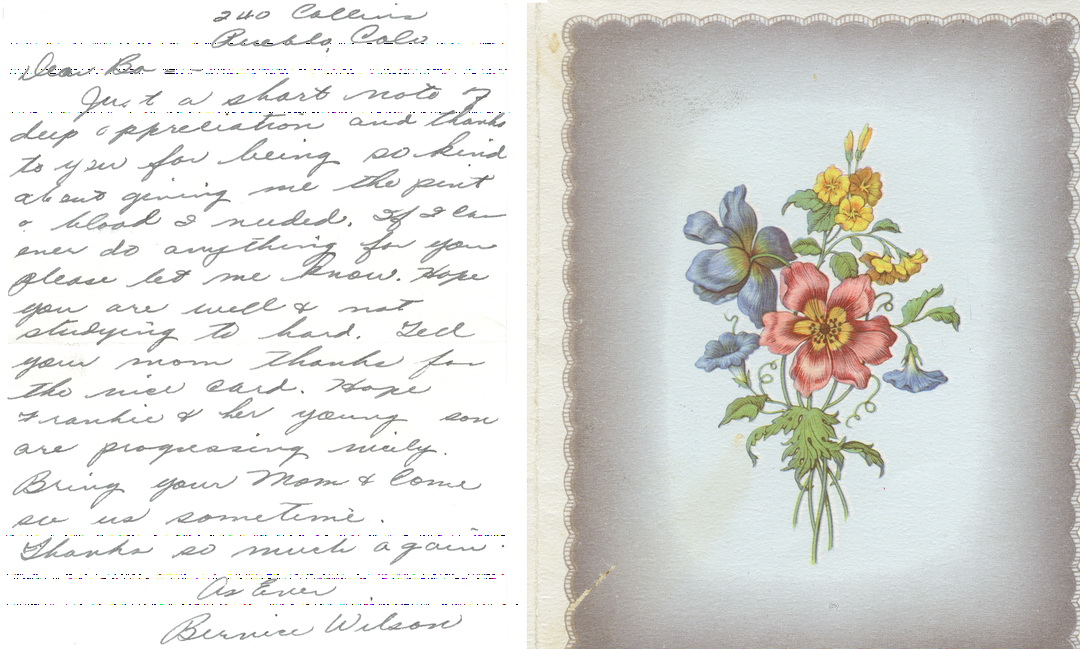 240 Collins
Pueblo, Colo
Dear Bo - -
Just a short note of
deep appreciation and thanks
to you for being so kind
about giving me the pint
o blood I needed. If I can
ever do anything for you
please let me know. Hope
you are well & not
studying to hard. Tell
your mom thanks for
the nice card. Hope
Frankie & her young son
are progressing nicely.
Bring your Mom & come
see us sometime.
Thanks so much again.
As Ever
Bernice Wilson